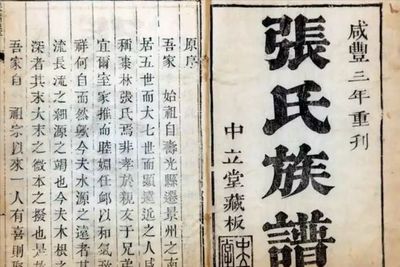 咸豐三年重刊
張氏族譜
中立堂藏板
原序
吾家 始祖自壽光縣遷景州之南
居五世而大七世而顯遠近之人咸
稱棗林張氏焉非孝於親友于兄弟
宜爾室家推而睦婣任卹以和氣致
祥何自而然歟今夫水源之遠者其
流長流之細源之竭也今夫木根之
深者其末大末之微本之撥也是故
吾家自 祖宗以來一人有喜則聚